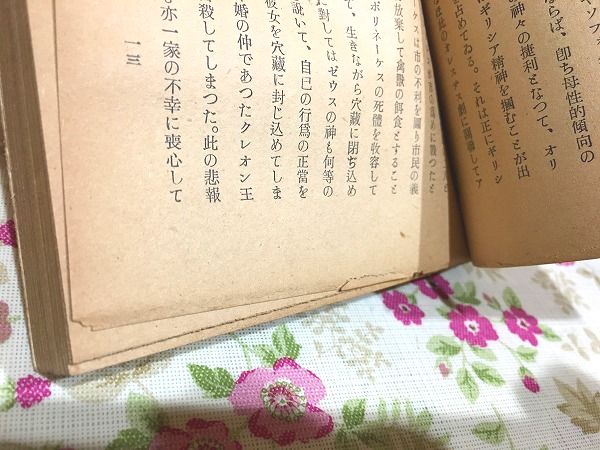 ならば、卽ち母性的傾向の
の神々の捷利となつて、オリ
ギリシア精神を摑むことが出
を占めてゐる。それは正にギリシ
ケスは市の不利を圖り市民の義
放棄して禽獸の餌食とすること
ポリネーケスの死體を收容して
て、生きながら穴藏に閉ぢ込め
に對してはゼウスの神も何等の
說いて、自己の行爲の正當を
彼女を穴藏に封じ込めてしま
婚の仲であつたクレオン王
殺してしまつた。此の悲報
亦一家の不幸に喪心して
一三